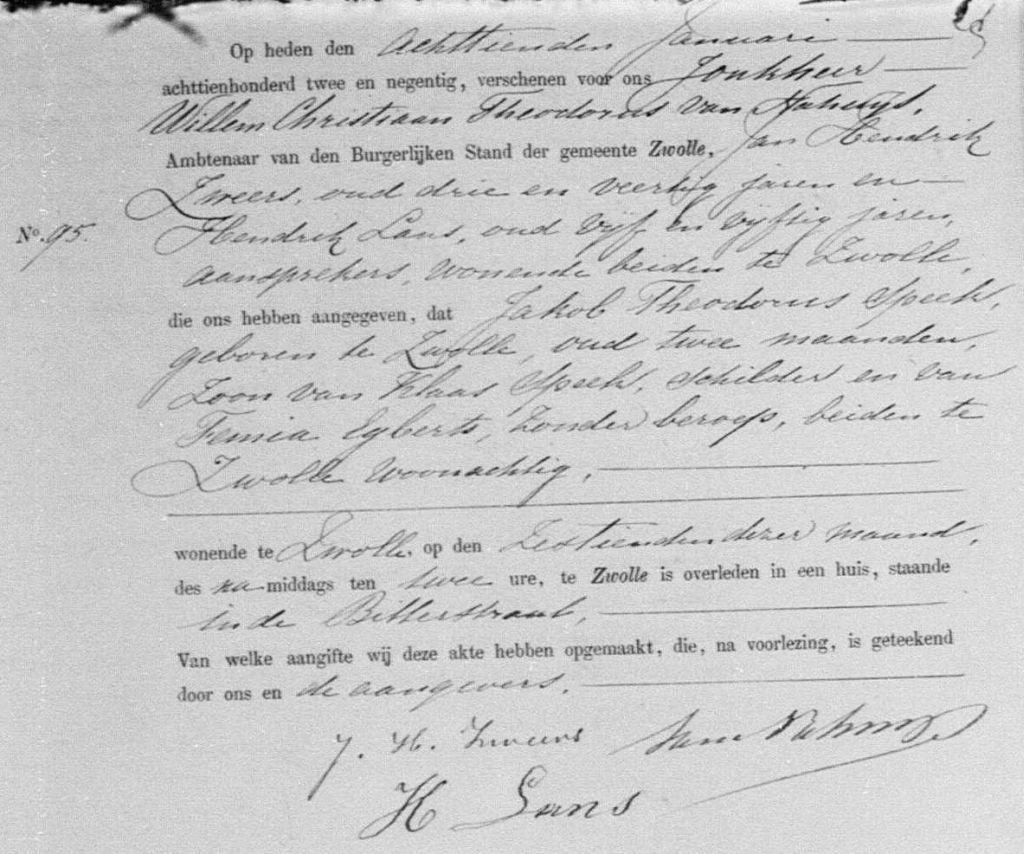 Op heden den achttienden Januari
achttienhonderd twee en negentig, verschenen voor ons Jonkheer
Willem Christiaan Theodorus van Nahuijs,
Ambtenaar van den Burgerlijken Stand der gemeente Zwolle, Jan Hendrik
Zweers, oud drie en veertig jaren en
No. 95. Hendrik Lans, oud vijf en vijftig jaren,
aansprekers, wonende beiden te Zwolle,
die ons hebben aangegeven, dat Jakob Theodorus Speek,
geboren te Zwolle, oud twee maanden,
Zoon van Klaas Speek, Schilder en van
Femia Egberts, zonder beroep, beiden te
Zwolle woonachtig,
wonende te Zwolle, op den Zestienden dezer maand,
des na middags ten twee ure, te Zwolle is overleden in een huis, staande
in de Bitterstraat,
Van welke aangifte wij deze akte hebben opgemaakt, die, na voorlezing, is geteekend
door ons en de aangevers.
J. H. Zweers van Nahuys
H Lans